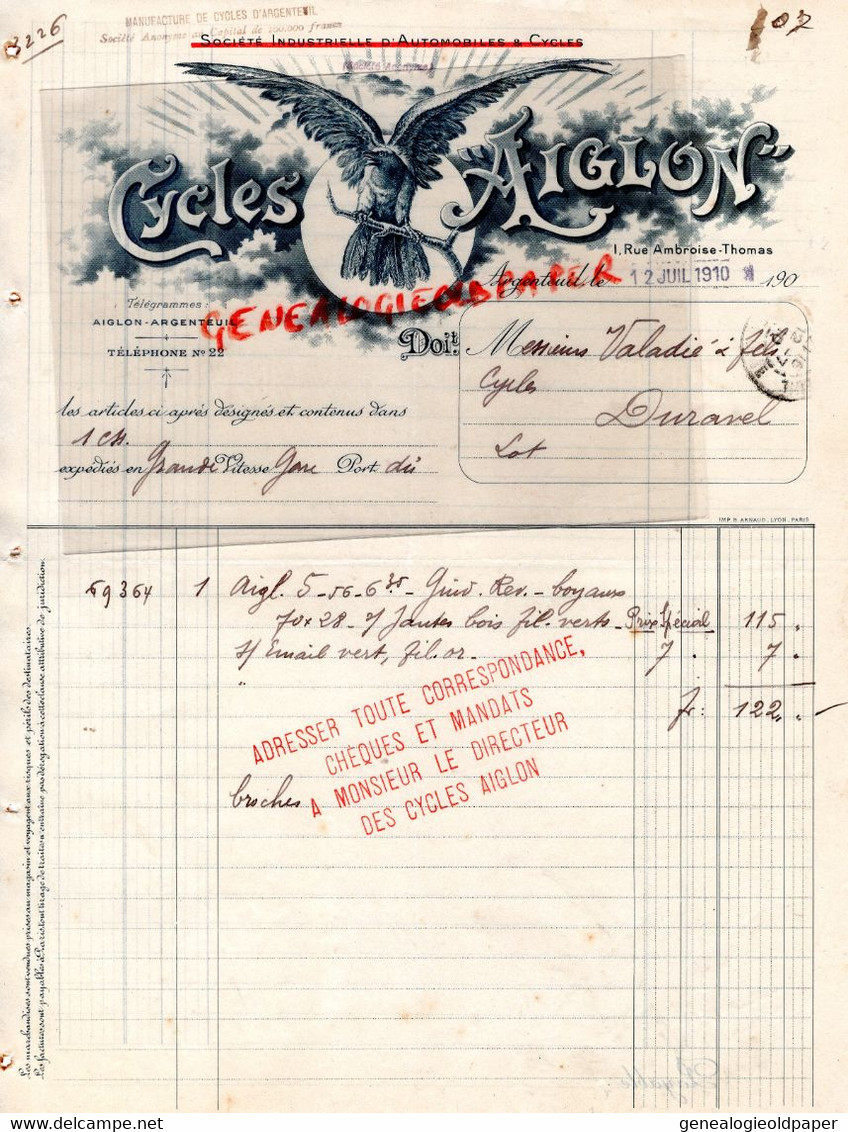 MANUFACTURE DE CYCLES D'ARGENTEUIL
Société Anonyme au Capital de 100.000 francs
3226
107
SOCIÉTÉ INDUSTRIELLE D'AUTOMOBILES & CYCLES
(Société Anonyme)
CYCLES "AIGLON"
1, Rue Ambroise-Thomas
Argenteuil, le 12 JUIL 1910 190
GENEALOGIEOLDPAPER
Télégrammes:
AIGLON-ARGENTEUIL
TÉLÉPHONE Nº 22
Doit
Messieurs Valadié & fils
Cycles
Duravel
Lot
les articles ci après désignés et contenus dans
1 css.
expédiés en Grande Vitesse Gare Port dû
IMP. B. ARNAUD, LYON-PARIS
69364 1 Aigl. 5-56-6 35 Rev.- boyaux
70x28-7/ Jantes bois fil. verts - Prix Spécial 115 "
s/ Email vert, fil. or. 7 . 7 .
fr: 122 "
ADRESSER TOUTE CORRESPONDANCE,
CHÈQUES ET MANDATS
A MONSIEUR LE DIRECTEUR
DES CYCLES AIGLON
broches
Les marchandises sont vendues prises au magasin et voyagent aux risques et périls des destinataires.
Les factures sont payables à Paris tout tirage de traite n'entraine pas dérogation à cette clause attributive de juridiction.
delcampe.net
genealogieoldpaper